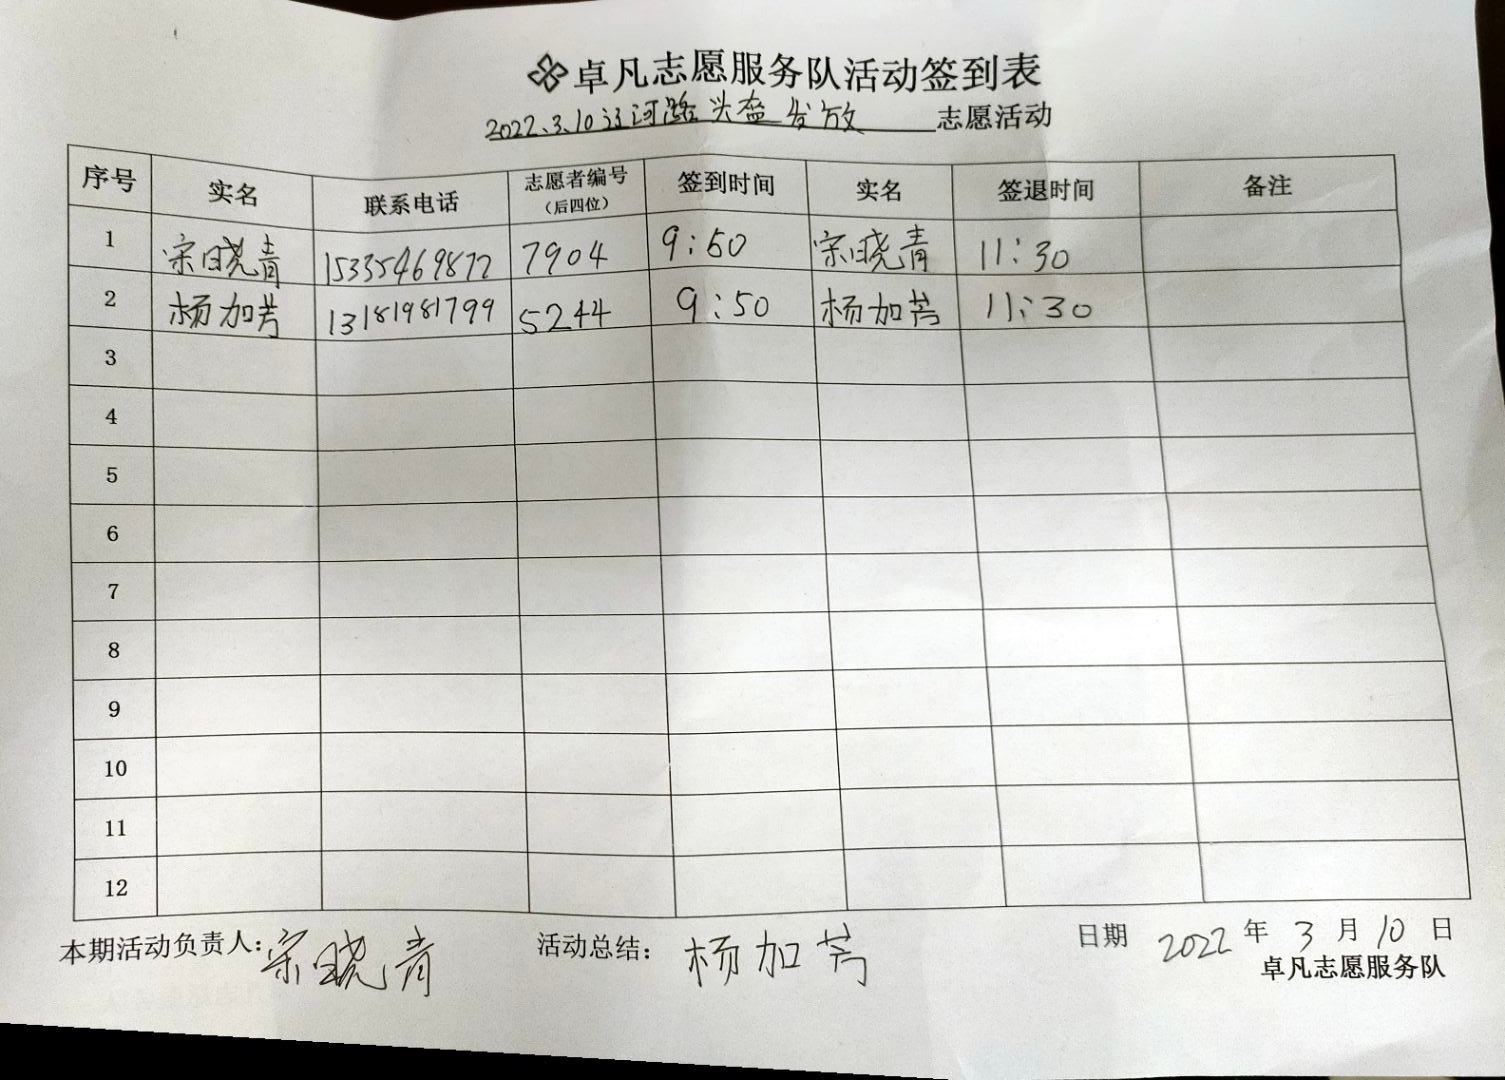 卓凡志愿服务队活动签到表
2022.3.10辽河路头盔发放 志愿活动
序号 实名 联系电话 志愿者编号（后四位） 签到时间 实名 签退时间 备注
1 宋晓青 15335469877 7904 9:50 宋晓青 11:30
2 杨加芳 13181981799 5244 9:50 杨加芳 11:30
3
4
5
6
7
8
9
10
11
12
本期活动负责人：宋晓青 活动总结：杨加芳 日期 2022 年 3 月 10 日
卓凡志愿服务队